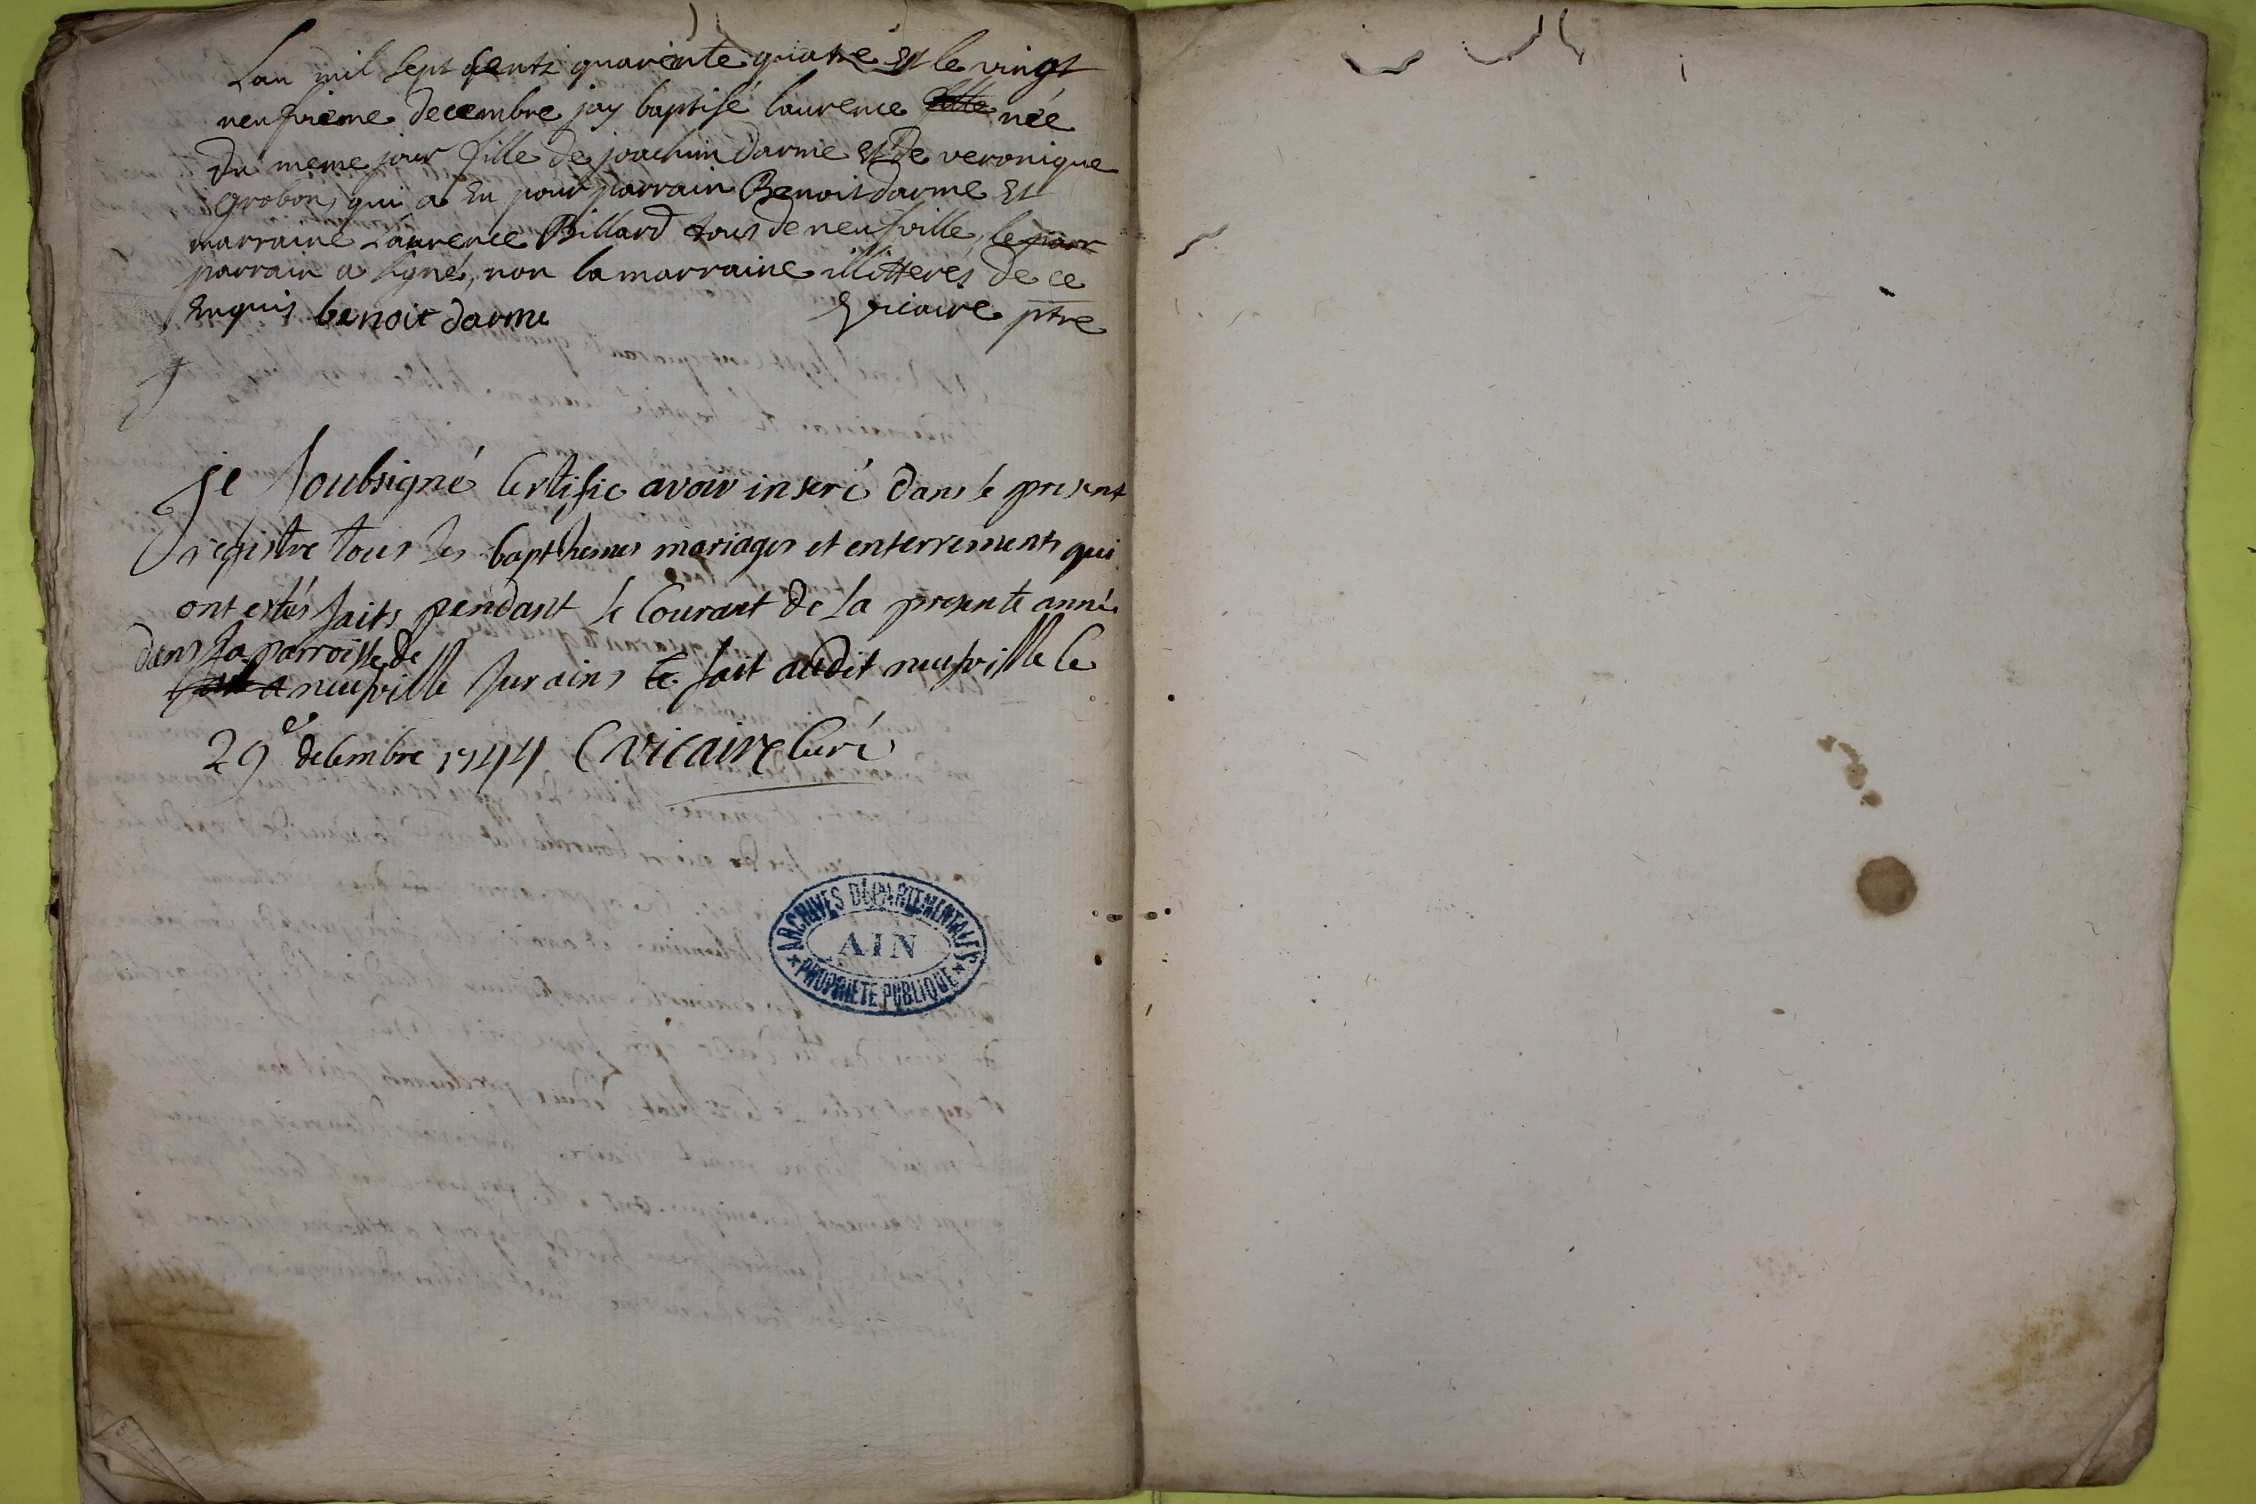 Lan mil sept cents quarente quatre Et le vingt
neufvieme decembre jay baptisé laurence fille née
du meme jour fille de joachim darme Et de veronique
grobon, qui a Eu pour parrain Benoit darme Et
marraine Laurence Billard tous de neufville, le parr
parrain a signé, non la marraine illitterés de ce
Enquis benoit darme vicaire ptre
je soubsigné Certifie avoir inseré dans le present
registre tous les bapthemes mariages et enterrements qui
ont estés faits pendant le Courant de la presente anné
dans la parroisse de
a neufville sur ains fait audit neufville le
29e decembre 1744 C vicaire Curé
ARCHIVES DÉPARTEMENTALES
AIN
PROPRIÉTÉ PUBLIQUE